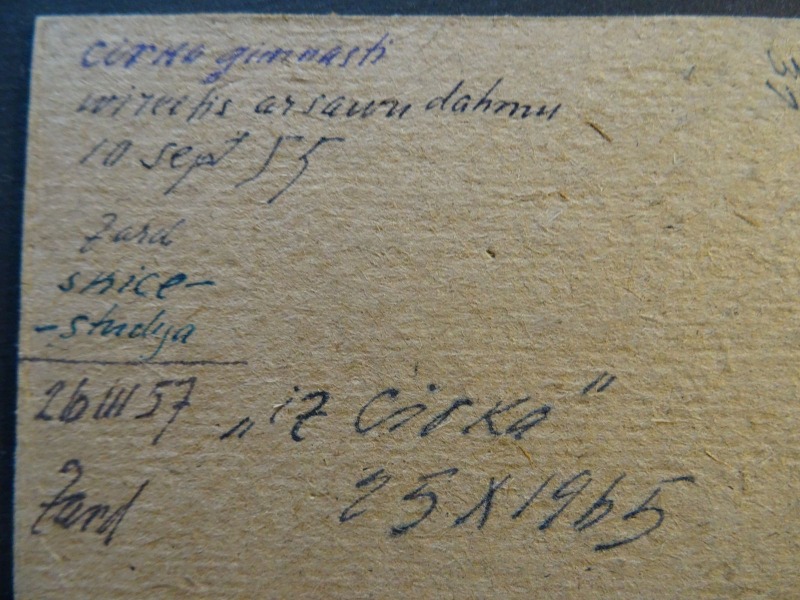 cirka gimnasti
wireehs arsawu dahmu
10 sept 55
Zard
skice-
-studya
26 III 57 „iz Cirka”
Zard 25 X 1965